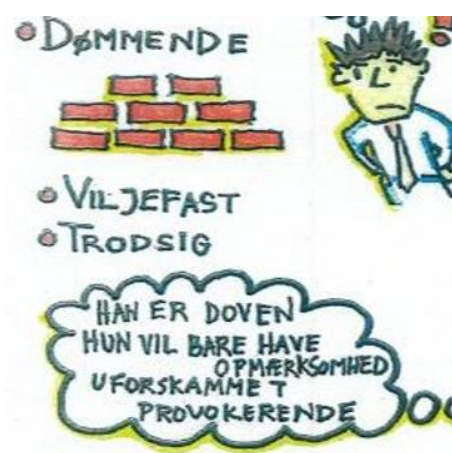 DØMMENDE
VILJEFAST
TRODSIG
HAN ER DOVEN
HUN VIL BARE HAVE
OPMÆRKSOMHED
UFORSKAMMET
PROVOKERENDE